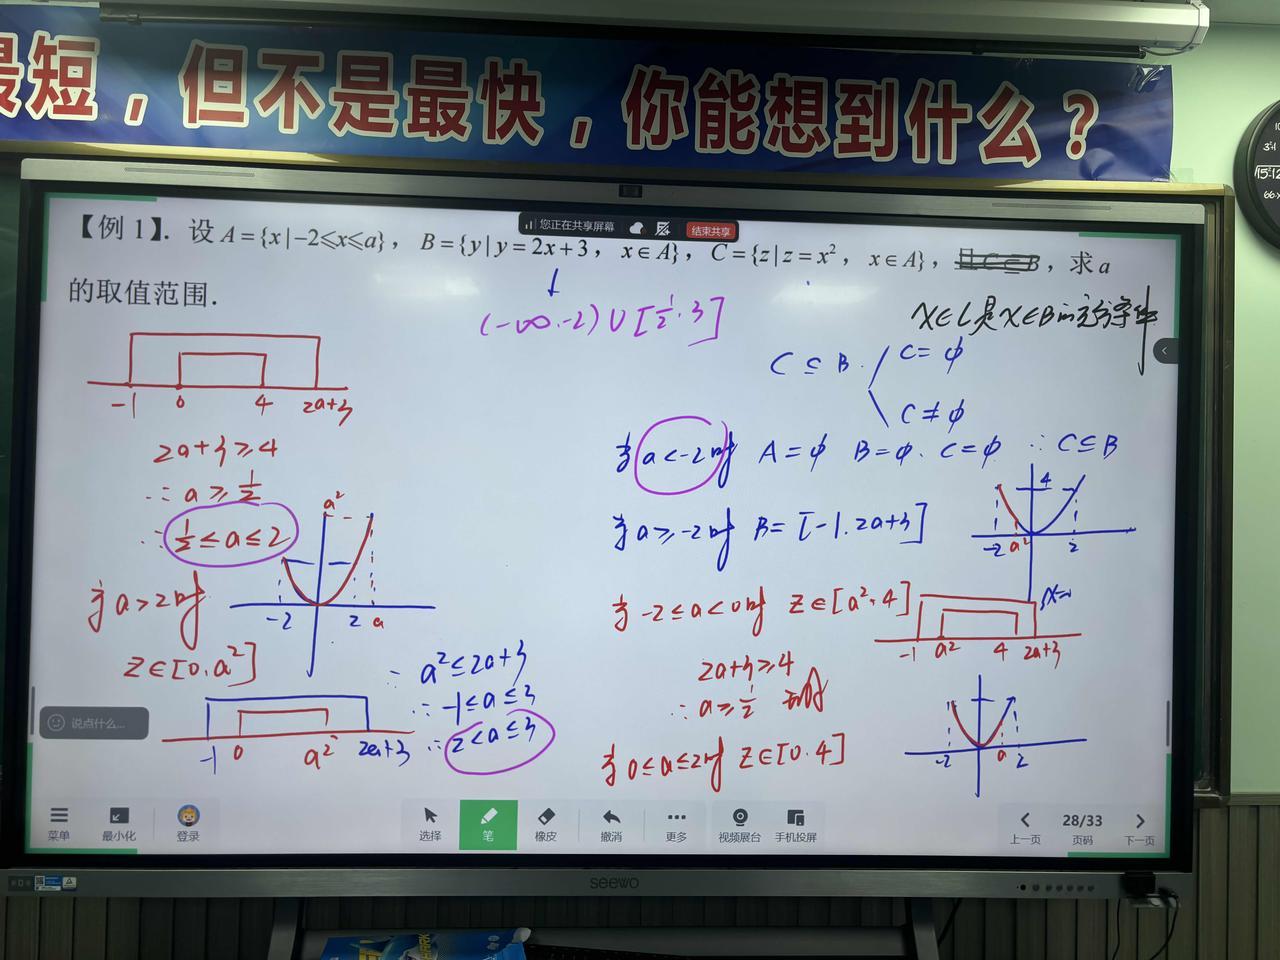 最短，但不是最快，你能想到什么？
您正在共享屏幕 结束共享
【例1】. 设A={x|-2≤x≤a}，B={y|y=2x+3，x∈A}，C={z|z=x²，x∈A}，且C⊆B，求a
的取值范围．
(-∞.-2)∪[1/2.3]
x∈C是x∈B的充分条件
C⊆B
C=ϕ
C≠ϕ
-1 0 4 2a+3
2a+3≥4
∴a≥1/2
∴1/2≤a≤2
当a>2时
z∈[0.a²]
a²
-2 2 a
-1 0 a² 2a+3
∴a²≤2a+3
∴-1≤a≤3
∴2<a≤3
当a<-2时 A=ϕ B=ϕ. C=ϕ ∴C⊆B
当a≥-2时 B=[-1.2a+3]
4
-2 a² 2
当-2≤a<0时 z∈[a²,4]
-1 a² 4 2a+3
2a+3≥4
∴a≥1/2
当0≤a≤2时 z∈[0.4]
-2 a 2
说点什么...
菜单 最小化 登录 选择 笔 橡皮 撤消 更多 视频展台 手机投屏 上一页 28/33 页码 下一页
seewo